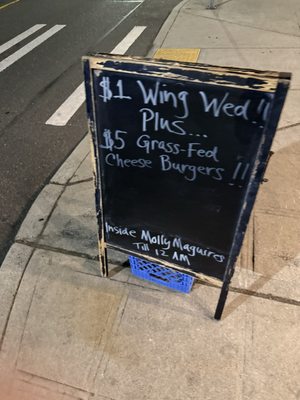 $1 Wing Wed!!
Plus...
$5 Grass-Fed
Cheese Burgers!!
Inside Molly Maguires
Till 12 AM